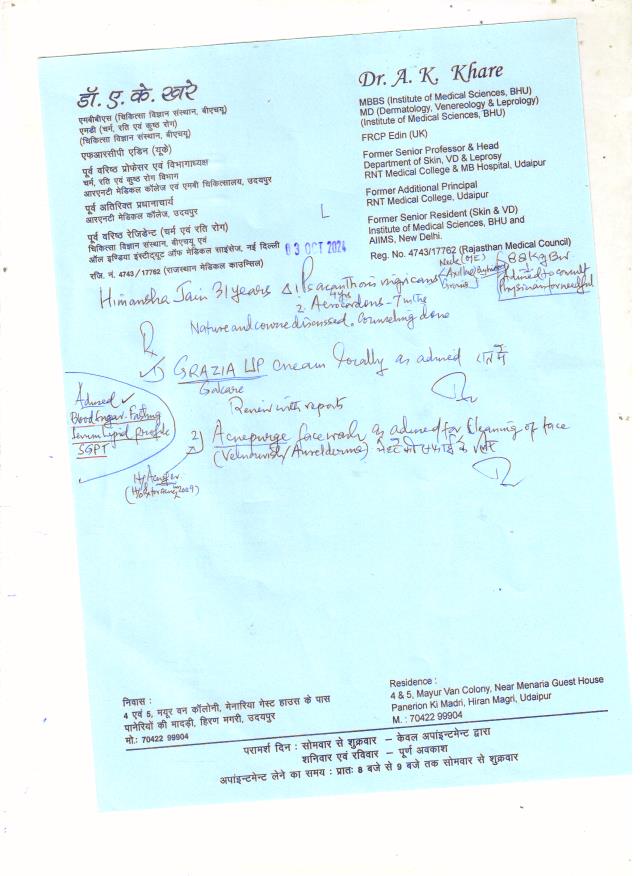 डॉ. ए. के. खरे
एमबीबीएस (चिकित्सा विज्ञान संस्थान, बीएचयू)
एमडी (चर्म, रति एवं कुष्ठ रोग)
(चिकित्सा विज्ञान संस्थान, बीएचयू)
एफआरसीपी एडिन (यूके)
पूर्व वरिष्ठ प्रोफेसर एवं विभागाध्यक्ष
चर्म, रति एवं कुष्ठ रोग विभाग
आरएनटी मेडिकल कॉलेज एवं एमबी चिकित्सालय, उदयपुर
पूर्व अतिरिक्त प्रधानाचार्य
आरएनटी मेडिकल कॉलेज, उदयपुर
पूर्व वरिष्ठ रेजिडेन्ट (चर्म एवं रति रोग)
चिकित्सा विज्ञान संस्थान, बीएचयू एवं
ऑल इण्डिया इंस्टीट्यूट ऑफ मेडिकल साइंसेज, नई दिल्ली
रजि. नं. 4743/17762 (राजस्थान मेडिकल काउन्सिल)
Dr. A. K. Khare
MBBS (Institute of Medical Sciences, BHU)
MD (Dermatology, Venereology & Leprology)
(Institute of Medical Sciences, BHU)
FRCP Edin (UK)
Former Senior Professor & Head
Department of Skin, VD & Leprosy
RNT Medical College & MB Hospital, Udaipur
Former Additional Principal
RNT Medical College, Udaipur
Former Senior Resident (Skin & VD)
Institute of Medical Sciences, BHU and
AIIMS, New Delhi.
Reg. No. 4743/17762 (Rajasthan Medical Council)
L
03 OCT 2024
Himansha Jain 31 years Δ 1. Ps acanthosis nigricans
Neck
88 Kg BW
Advised to consult
Physician for needful
2. Acrocordons
Nature and course discussed. Counseling done
R
1) GRAZIA UP cream locally as advised रात में
Galcare
Review with reports
Advised ✓
Blood Sugar Fasting
Serum Lipid Profile
SGPT
2) Acnepurge face wash as advised for cleaning of face
निवास :
4 एवं 5, मयूर वन कॉलोनी, मेनारिया गेस्ट हाउस के पास
पानेरियों की मादड़ी, हिरण मगरी, उदयपुर
मो.: 70422 99904
Residence :
4 & 5, Mayur Van Colony, Near Menaria Guest House
Panerion Ki Madri, Hiran Magri, Udaipur
M. : 70422 99904
परामर्श दिन : सोमवार से शुक्रवार – केवल अपांइन्टमेन्ट द्वारा
शनिवार एवं रविवार – पूर्ण अवकाश
अपांइन्टमेन्ट लेने का समय : प्रातः 8 बजे से 9 बजे तक सोमवार से शुक्रवार